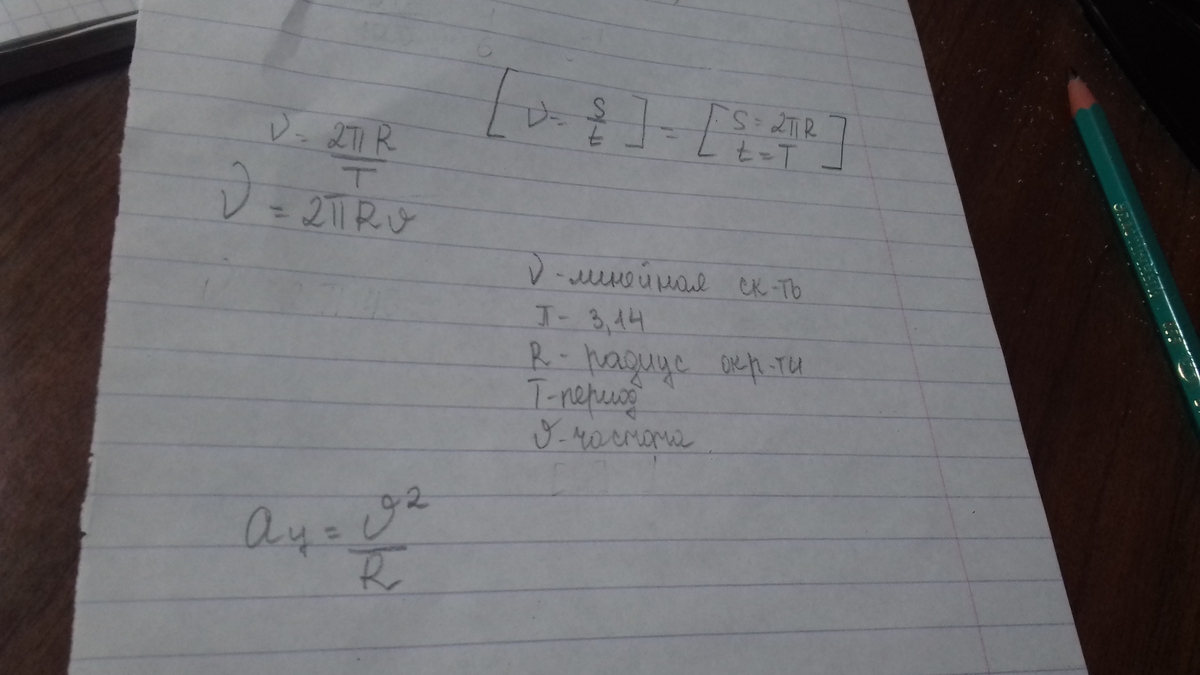 [ν = S/t] = [S = 2πR t = T]
ν = 2πR/T
ν = 2πRϑ
ν - линейная ск-ть
π - 3,14
R - радиус окр-ти
T - период
ϑ - частота
aц = ϑ²/R